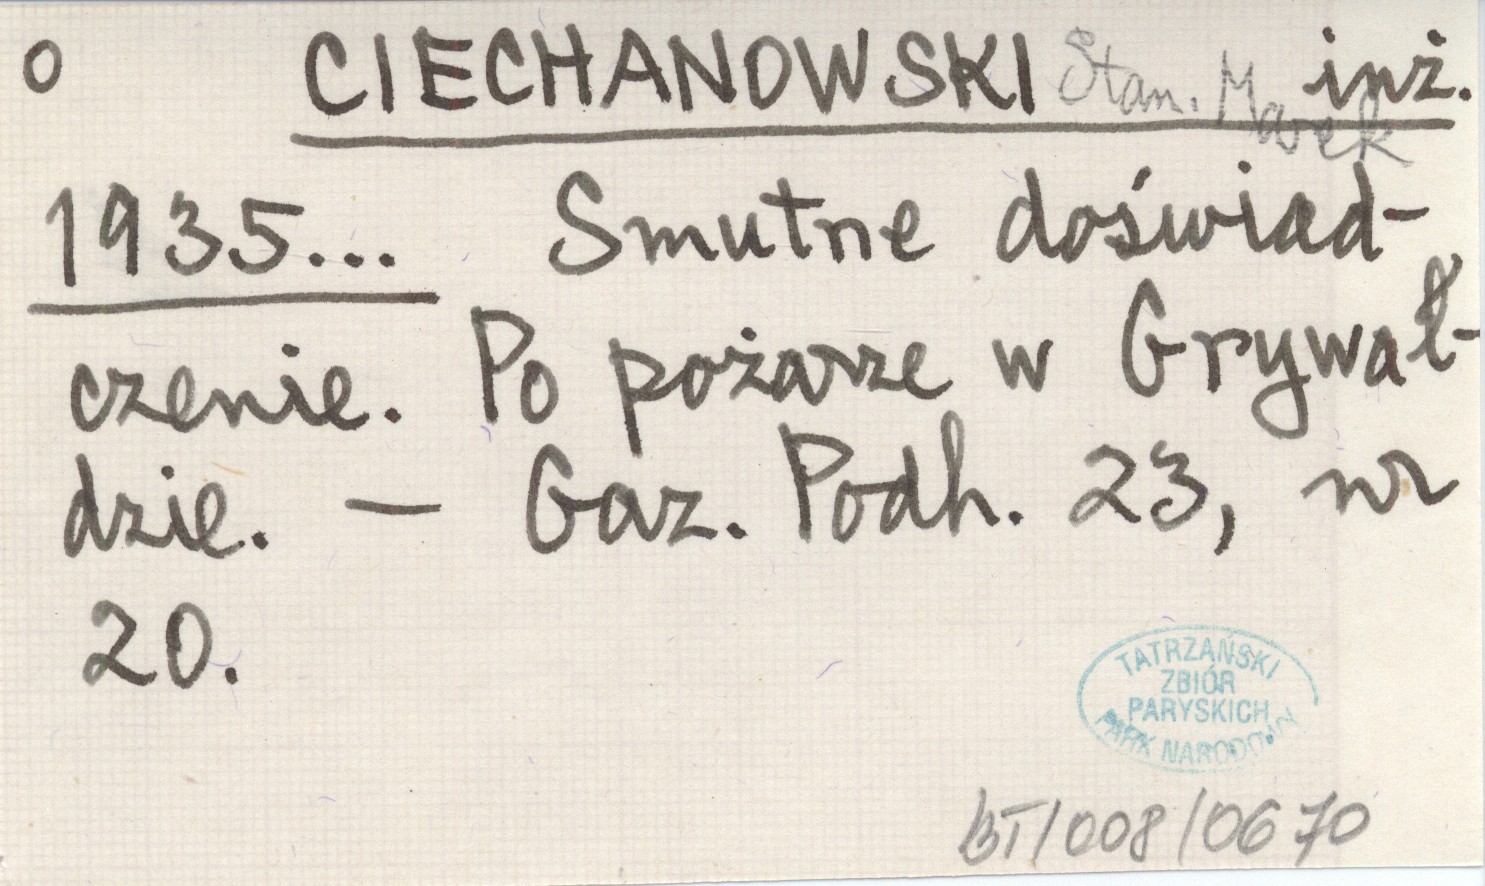 o CIECHANOWSKI Stan. Marek inż.
1935... Smutne doświad-
czenie. Po pożarze w Grywał-
dzie. — Gaz. Podh. 23, nr
20.
TATRZAŃSKI
ZBIÓR
PARYSKICH
PARK NARODOWY
BT/008/0670